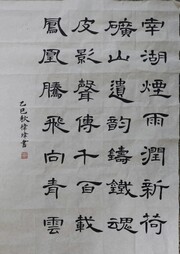 宰湖煙雨潤新荷
礦山遺韵鑄鐵魂
皮影聲傳千百載
鳳凰騰飛向青雲
乙巳秋徐瑋書